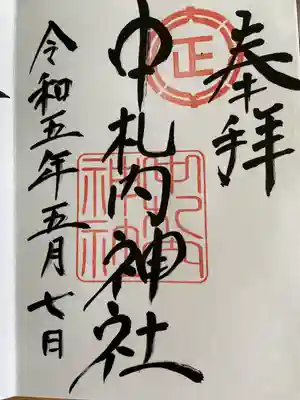 奉拝
正
中札内神社
令和五年五月七日